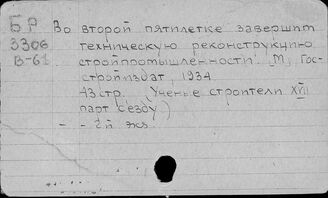 БР Во второй пятилетке завершит
3306 техническую реконструкцию
В-61 стройпромышленности. М, Гос-
стройиздат, 1934
43 стр. (Ученые строители XVII
парт съезду)
- - 2й экз.